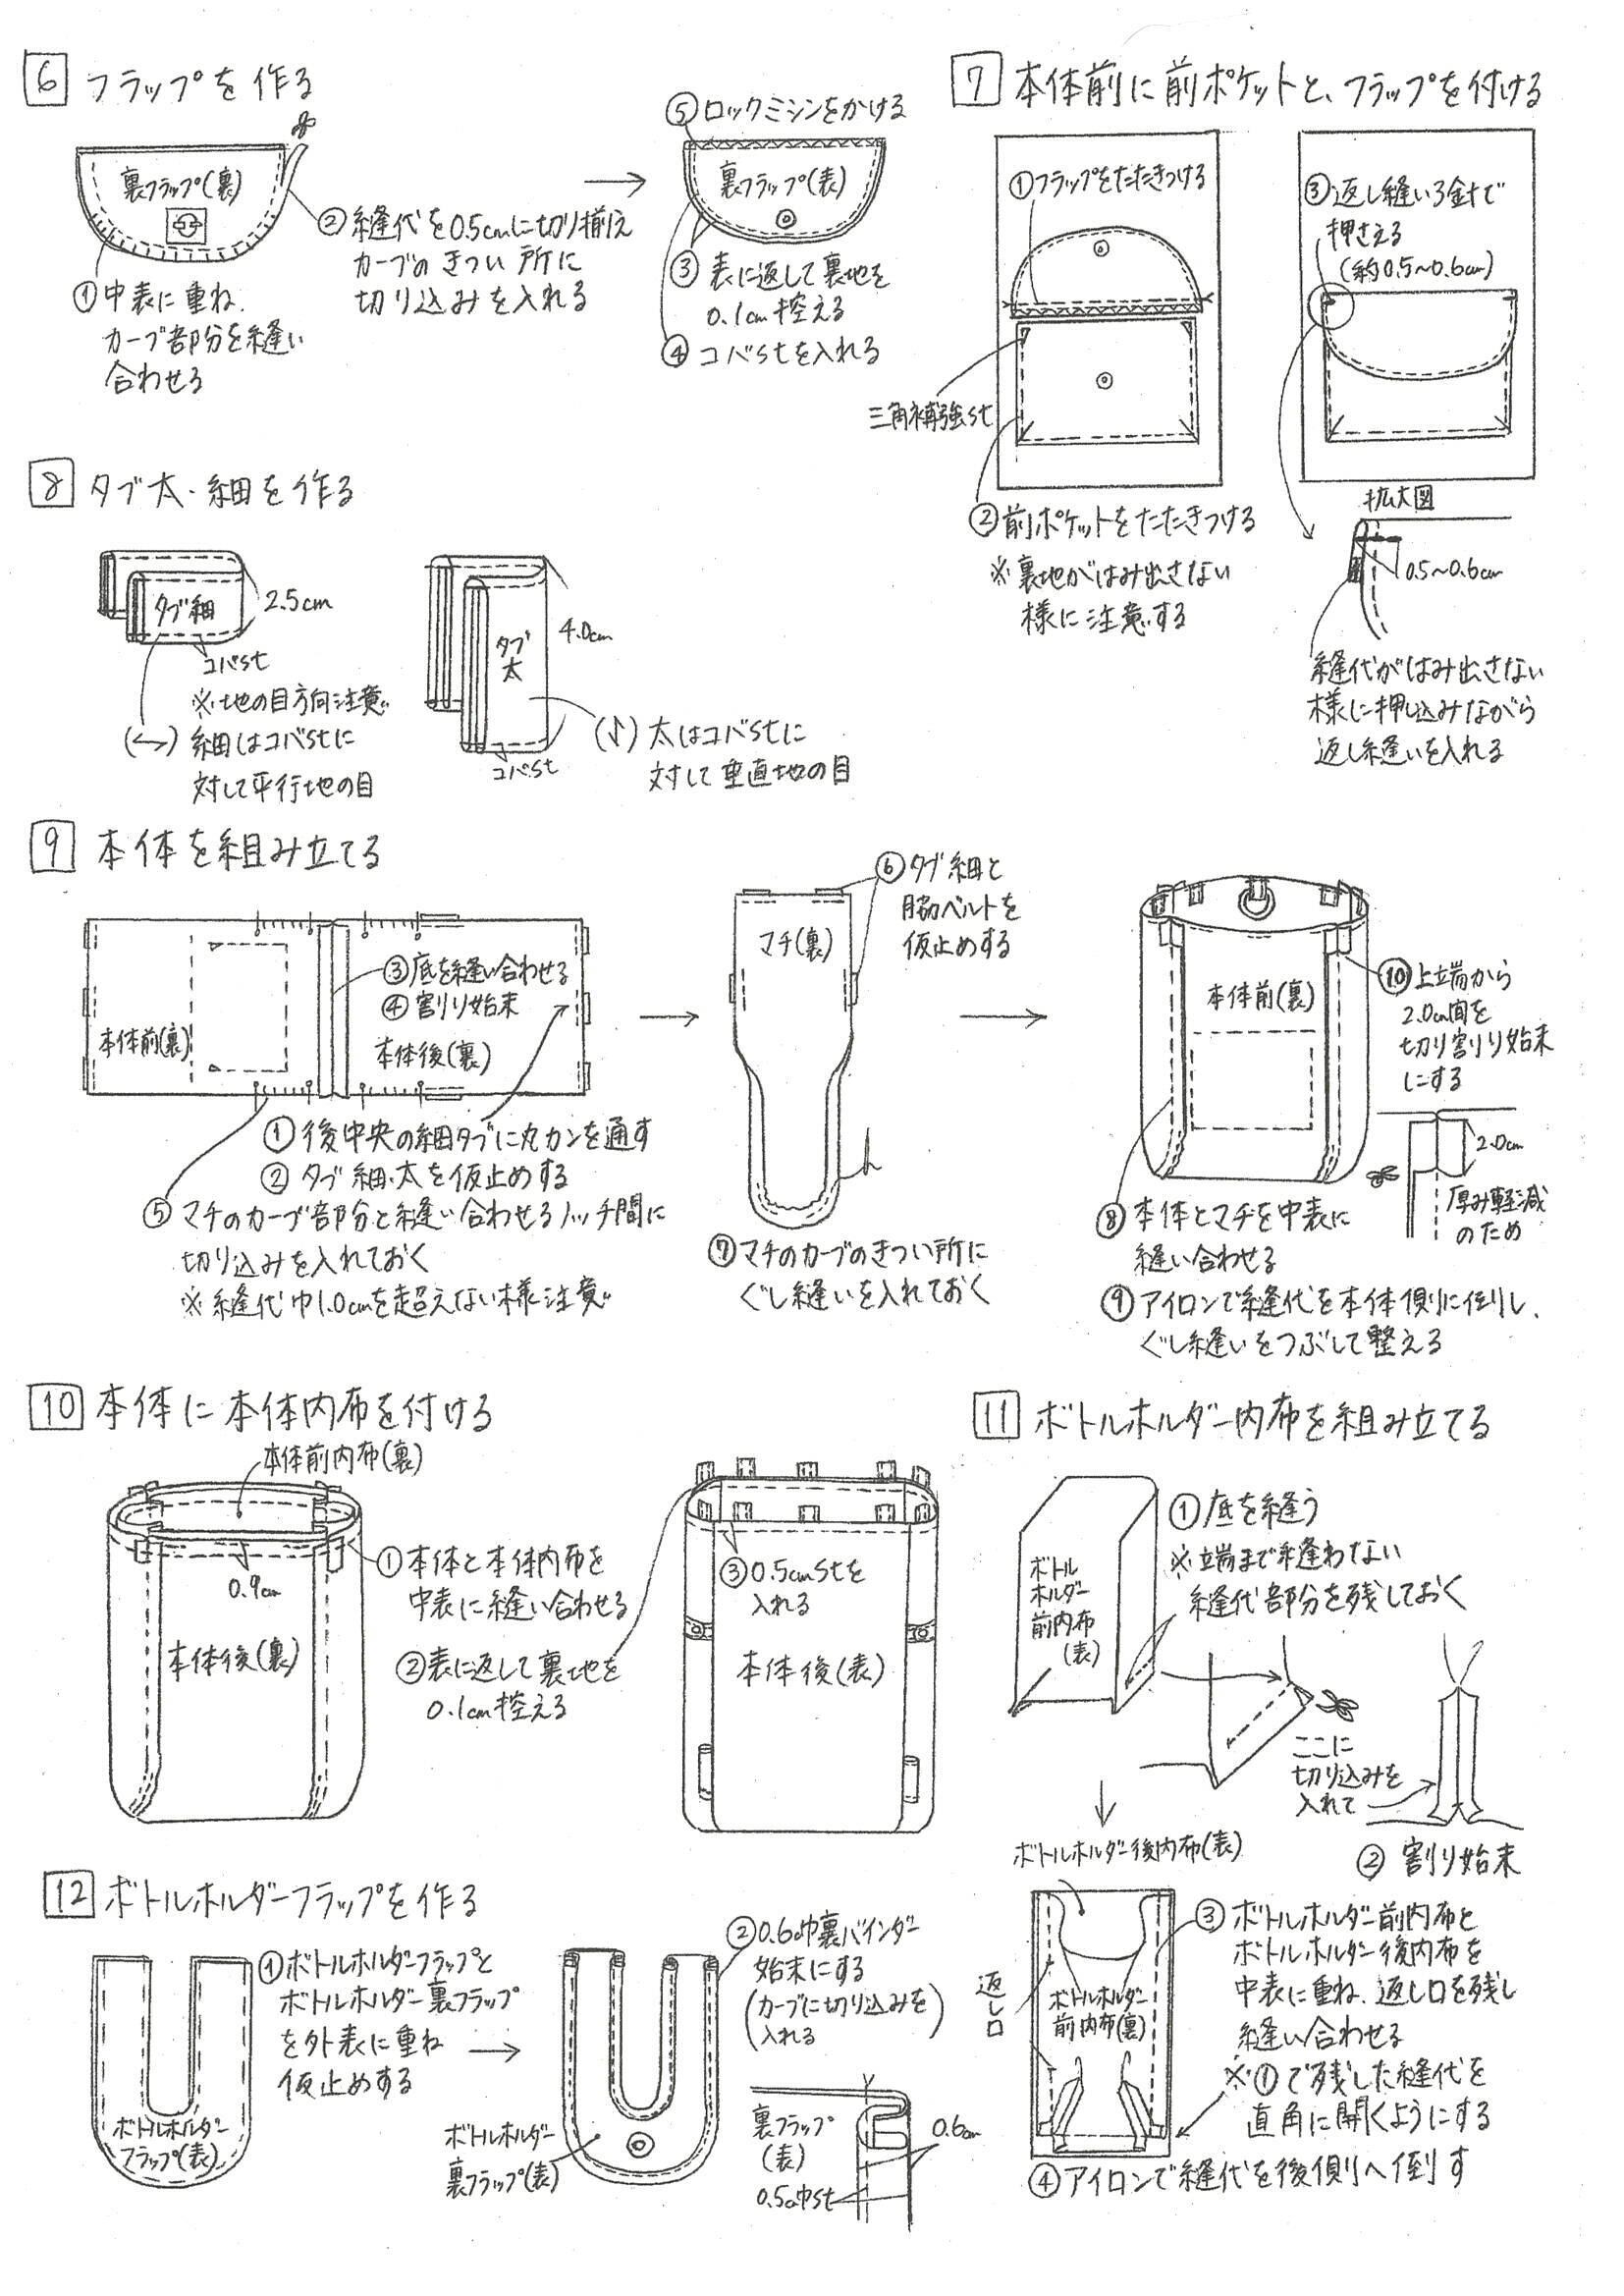 6 フラップを作る
裏フラップ(裏)
①中表に重ね、
カーブ部分を縫い
合わせる
②縫代を0.5cmに切り揃え
カーブのきつい所に
切り込みを入れる
⑤ロックミシンをかける
裏フラップ(表)
③表に返して裏地を
0.1cm控える
④コバstを入れる
7 本体前に前ポケットと、フラップを付ける
①フラップをたたきつける
三角補強st
②前ポケットをたたきつける
※裏地がはみ出さない
様に注意する
③返し縫い3針で
押さえる
(約0.5~0.6cm)
拡大図
0.5~0.6cm
縫代がはみ出さない
様に押し込みながら
返し縫いを入れる
8 タブ太・細を作る
タブ細
2.5cm
コバst
※地の目方向注意
(↔) 細はコバstに
対して平行地の目
タブ
太
4.0cm
コバst
太はコバstに
対して垂直地の目
9 本体を組み立てる
本体前(裏)
③底を縫い合わせる
④割り始末
本体後(裏)
①後中央の細タブに丸カンを通す
②タブ細・太を仮止めする
⑤マチのカーブ部分と縫い合わせるノッチ間に
切り込みを入れておく
※縫代巾1.0cmを超えない様注意
⑥タブ細と
脇ベルトを
仮止めする
マチ(裏)
⑦マチのカーブのきつい所に
ぐし縫いを入れておく
本体前(裏)
⑩上端から
2.0cm間を
切り割り始末
にする
2.0cm
厚み軽減
のため
⑧本体とマチを中表に
縫い合わせる
⑨アイロンで縫代を本体側に倒し、
ぐし縫いをつぶして整える
10 本体に本体内布を付ける
本体前内布(裏)
0.9cm
本体後(裏)
①本体と本体内布を
中表に縫い合わせる
②表に返して裏地を
0.1cm控える
③0.5cmstを
入れる
本体後(表)
11 ボトルホルダー内布を組み立てる
ボトル
ホルダー
前内布
(表)
①底を縫う
※端まで縫わない
縫代部分を残しておく
ここに
切り込みを
入れて
②割り始末
ボトルホルダー後内布(表)
返し口
ボトルホルダー
前内布(裏)
③ボトルホルダー前内布と
ボトルホルダー後内布を
中表に重ね、返し口を残し
縫い合わせる
※①で残した縫代を
直角に開くようにする
④アイロンで縫代を後側へ倒す
12 ボトルホルダーフラップを作る
ボトルホルダー
フラップ(表)
①ボトルホルダーフラップと
ボトルホルダー裏フラップ
を外表に重ね
仮止めする
ボトルホルダー
裏フラップ(表)
②0.6巾裏バインダー
始末にする
(カーブに切り込みを
入れる)
裏フラップ
(表)
0.6cm
0.5巾st